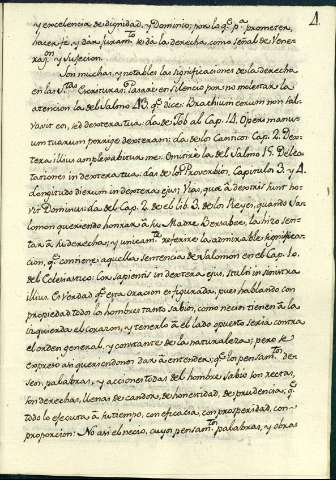 4
y excelencia de dignidad, y Dominio; por lo qe. pa. prometer,
hacer fe, y dar juramto. se dà la derecha, como señal de Vene-
raon. y Sujecion.
Son muchas, y notables las significaciones de la derecha
en las Stas. Escrituras. Pasare en silencio por no molestar la
atencion la del Salmo 43. qe. dice: Brachium eorum non sal-
vavit eos, sed dextera tua: la de Job al Cap. 14. Operi manu-
um tuarum porriges dexteram: la de los Cantico Cap. 2. Dex-
tera illius amplexabitur me. Omitirè la del Salmo 15. Delec-
tationes in dextera tua: las de los Proverbios, Capitulos 3. y 4.
Longitudo dierum in dextera ejus; Vias, quæ à dextris sunt no-
vit Dominus: la del Cap. 2. de el lib. 3. de los Reyes, quando Sa-
lomon queriendo honrar à su Madre Bersabee, la hizo sen-
tar à su derecha; y unicamte. referire la admirable significa-
cion, qe. contiene aquella Sentencia de Salomon en el Cap. 10.
del Celesiastico: Cor sapientis in dextera ejus, stulti in sinistra
illius. Es verdad qe. esta oracion es figurada, pues hablando con
propiedad todo los hombres tanto sabios, como necios tienen à la
izquierda el corazon, y tenerlo à el lado opuesto seria contra
el orden general, y constante de la naturaleza; pero se
expresò asi queriendonos dar à entender; qe. los pensamtos. de-
seos, palabras, y acciones todas del hombre sabio son rectas,
son derechas, llenas de candor, de honestidad, de prudencia; qe.
todo lo ejecuta à su tiempo, con eficacia, con prosperidad, con
proporcion: No asi el necio, cuyos pensamtos. palabras, y obras